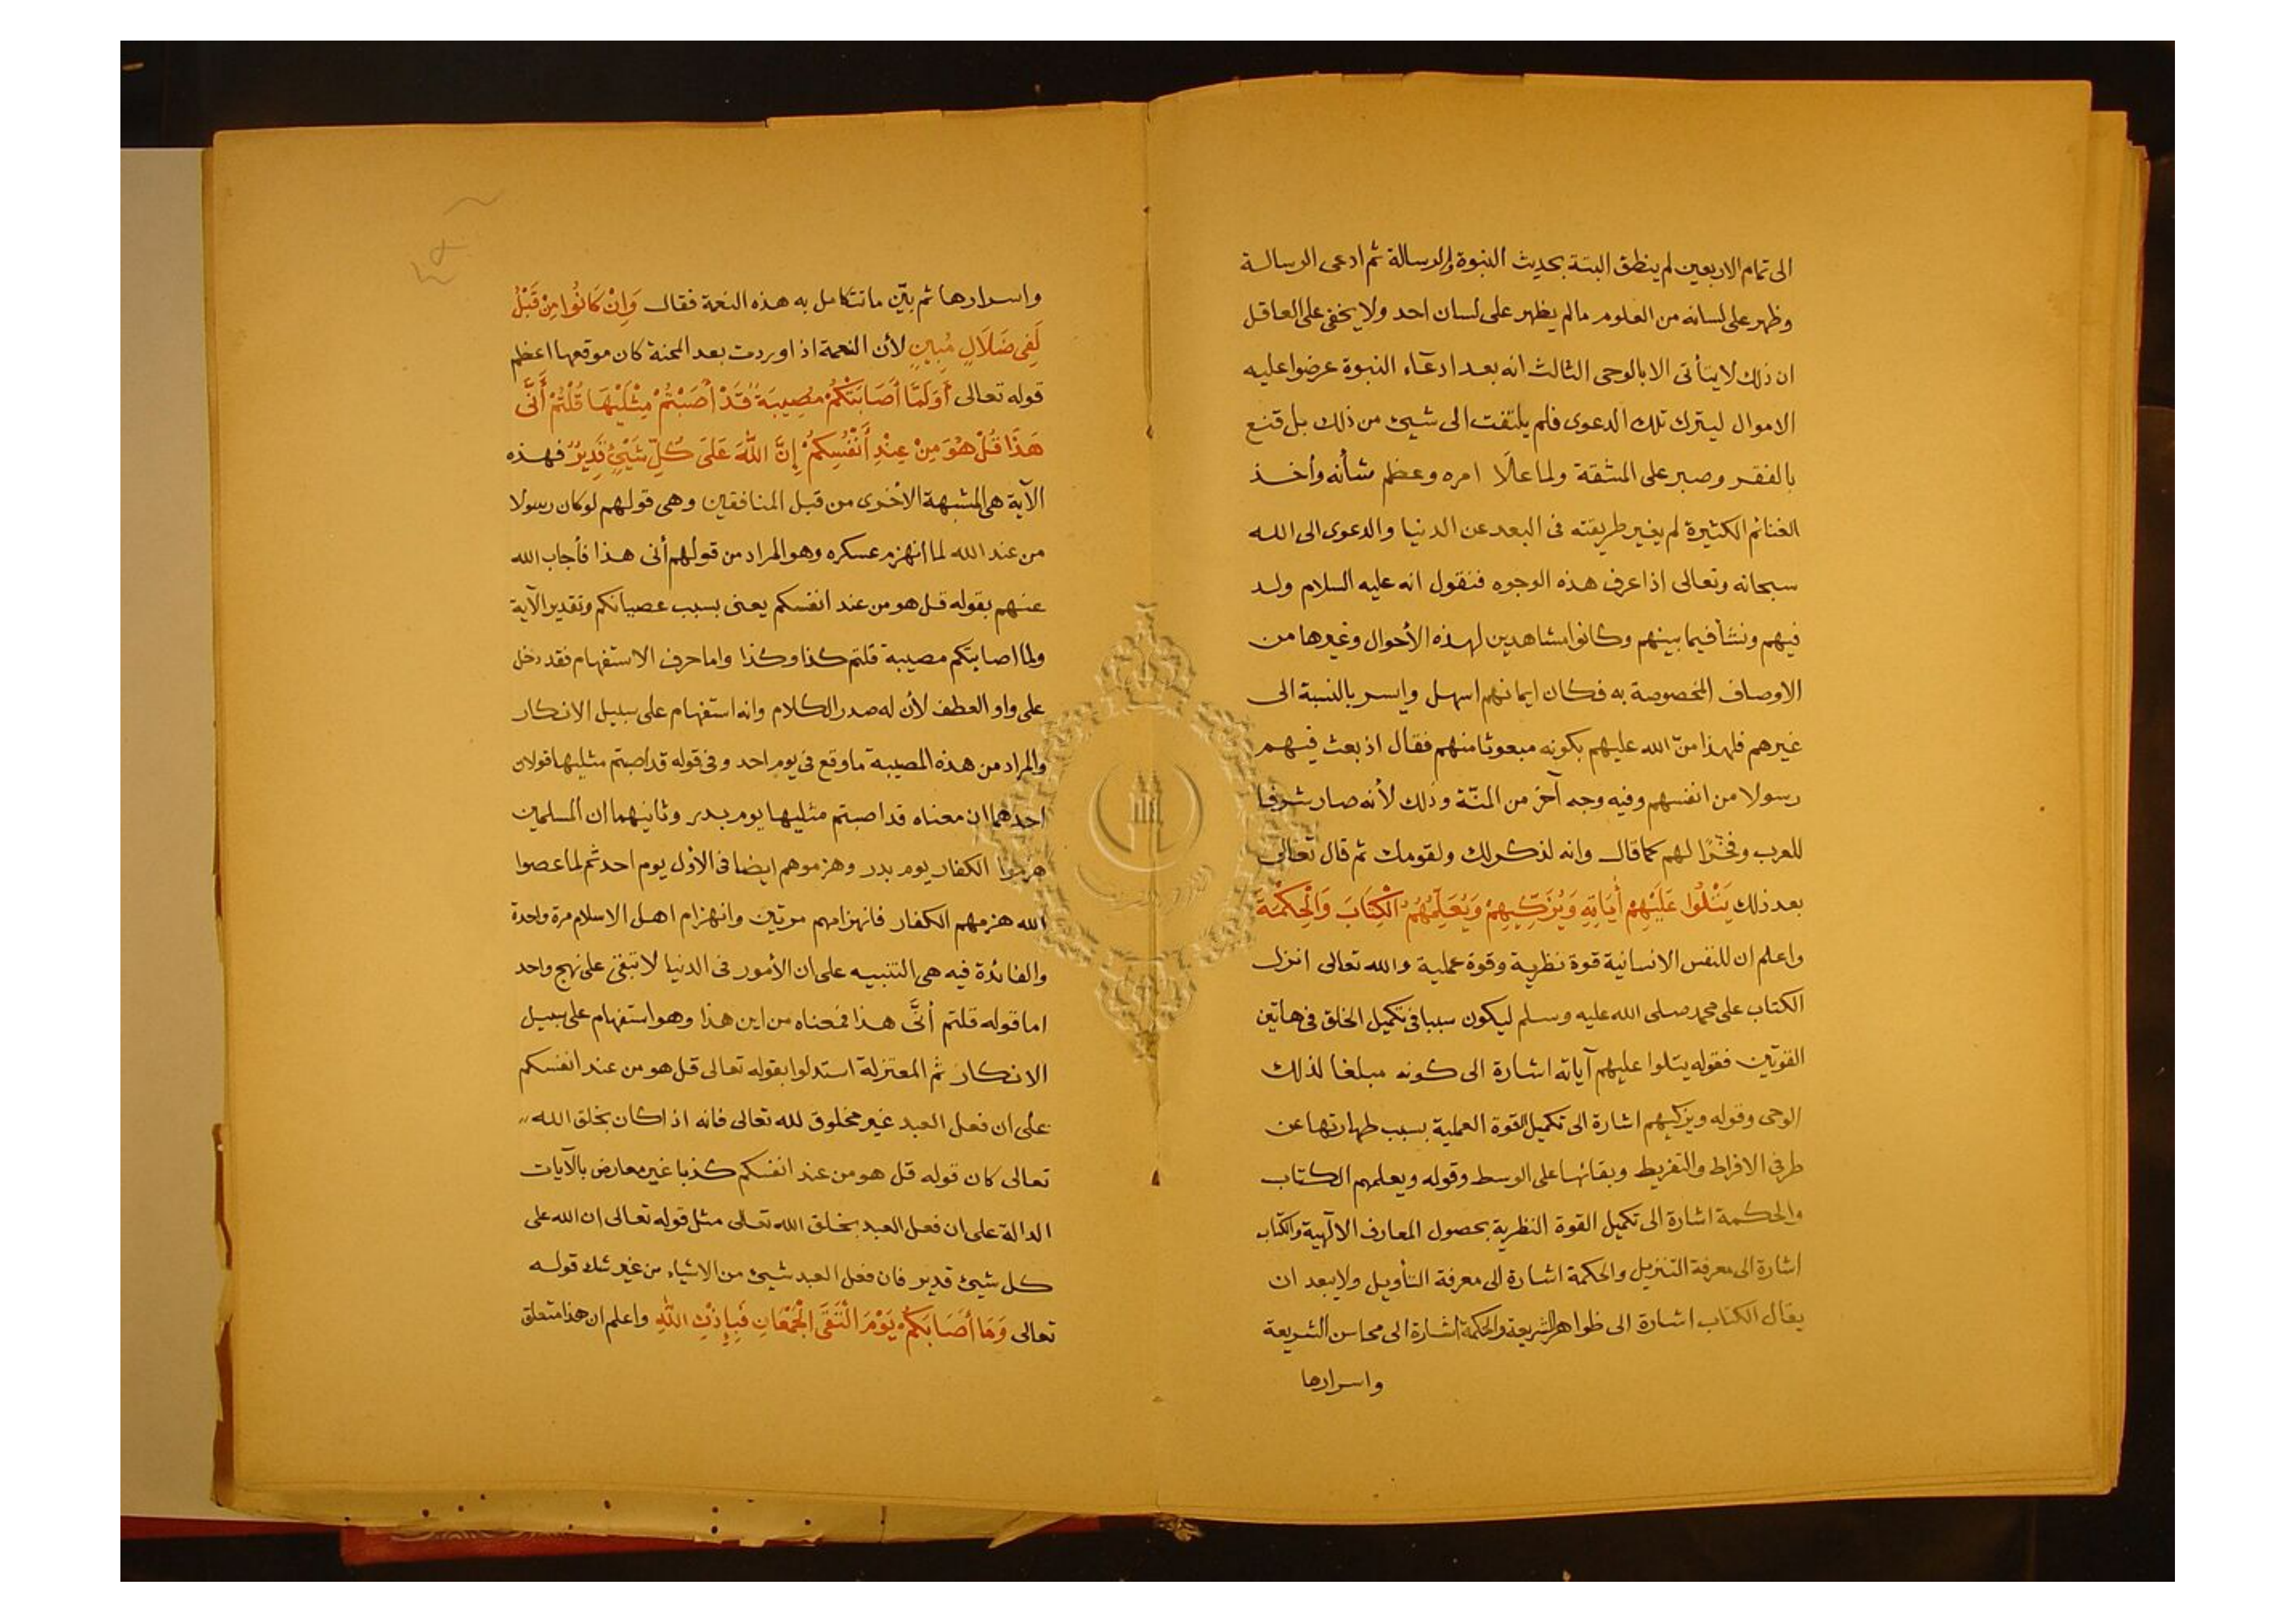 الى تمام الاربعين لم ينطق البتة بحديث النبوة والرسالة ثم ادعى الرسالة
وظهر على لسانه من العلوم مالم يظهر على لسان احد ولا يخفى على العاقل
ان ذلك لا يتأتى الا بالوحى الثالث انه بعد ادعآء النبوة عرضوا عليه
الاموال ليترك تلك الدعوى فلم يلتفت الى شيئ من ذلك بل قنع
بالفقر وصبر على المشقة ولما علا امره وعظم شأنه وأخذ
الغنائم الكثيرة لم يغير طريقته فى البعد عن الدنيا والدعوى الى الله
سبحانه وتعالى اذا عرف هذه الوجوه فنقول انه عليه السلام ولد
فيهم ونشأ فيما بينهم وكانوا مشاهدين لهذه الأحوال وغيرها من
الاوصاف المخصوصة به فكان ايمانهم اسهل وايسر بالنسبة الى
غيرهم فلهذا منّ الله عليهم بكونه مبعوثا منهم فقال اذ بعث فيهم
رسولا من انفسهم وفيه وجه آخر من المنّة وذلك لأنه صار شرفا
للعرب وفخرًا لهم كما قال وانه لذكر لك ولقومك ثم قال تعالى
بعد ذلك يَتْلُوا عَلَيْهِمْ أَيَاتِهِ وَيُزَكِّيهِمْ وَيُعَلِّمُهُمُ الْكِتَابَ وَالْحِكْمَةَ
واعلم ان للنفس الانسانية قوة نظرية وقوة عملية والله تعالى انزل
الكتاب على محمد صلى الله عليه وسلم ليكون سببا فى تكميل الخلق فى هاتين
القوتين فقوله يتلوا عليهم آياته اشارة الى كونه مبلغا لذلك
الوحى وقوله ويزكيهم اشارة الى تكميل القوة العملية بسبب طهارتها عن
طرفى الافراط والتفريط وبقائها على الوسط وقوله ويعلمهم الكتاب
والحكمة اشارة الى تكميل القوة النظرية بحصول المعارف الالهية والكتاب
اشارة الى معرفة التنزيل والحكمة اشارة الى معرفة التأويل ولا يبعد ان
يقال الكتاب اشارة الى ظواهر الشريعة والحكمة اشارة الى محاسن الشريعة
واسرارها
واسرارها ثم بيّن ما تتكامل به هذه النعمة فقال وَاِنْ كَانُوا مِنْ قَبْلُ
لَفِى ضَلَالٍ مُبِينٍ لأن النعمة اذا وردت بعد المحنة كان موقعها اعظم
قوله تعالى أَوَلَمَّا أَصَابَتْكُمْ مُصِيبَةٌ قَدْ أَصَبْتُمْ مِثْلَيْهَا قُلْتُمْ أَنَّى
هَذَا قُلْ هُوَ مِنْ عِنْدِ أَنْفُسِكُمْ إِنَّ اللّٰهَ عَلَى كُلِّ شَيْئٍ قَدِيرٌ فهذه
الآية هى المشبهة الأخرى من قبل المنافقين وهى قولهم لو كان رسولا
من عند الله لما انهزم عسكره وهو المراد من قولهم أنى هذا فأجاب الله
عنهم بقوله قل هو من عند انفسكم يعنى بسبب عصيانكم وتقدير الآية
ولما اصابتكم مصيبة قلتم كذا وكذا واما حرف الاستفهام فقد دخل
على واو العطف لأن له صدر الكلام وانه استفهام على سبيل الانكار
والمراد من هذه المصيبة ما وقع فى يوم احد وفى قوله قد اصبتم مثليها قولان
احدهما ان معناه قد اصبتم مثليها يوم بدر وثانيهما ان المسلمين
هزموا الكفار يوم بدر وهزموهم ايضا فى الأوّل يوم احد ثم لما عصوا
الله هزمهم الكفار فانهزامهم مرتين وانهزام اهل الاسلام مرة واحدة
والفائدة فيه هى التنبيه على ان الأمور فى الدنيا لا تبقى على نهج واحد
اما قوله قلتم أنّى هذا فمعناه من اين هذا وهو استفهام على سبيل
الانكار ثم المعتزلة استدلوا بقوله تعالى قل هو من عند انفسكم
على ان فعل العبد غير مخلوق لله تعالى فانه اذا كان بخلق الله
تعالى كان قوله قل هو من عند انفسكم كذبا غير معارض بالآيات
الدالة على ان فعل العبد بخلق الله تعالى مثل قوله تعالى ان الله على
كل شيئ قدير فان فعل العبد شيئ من الاشياء من غير شك قوله
تعالى وَمَا أَصَابَكُمْ يَوْمَ الْتَقَى الْجَمْعَانِ فَبِإِذْنِ اللّٰهِ واعلم ان هذا متعلق